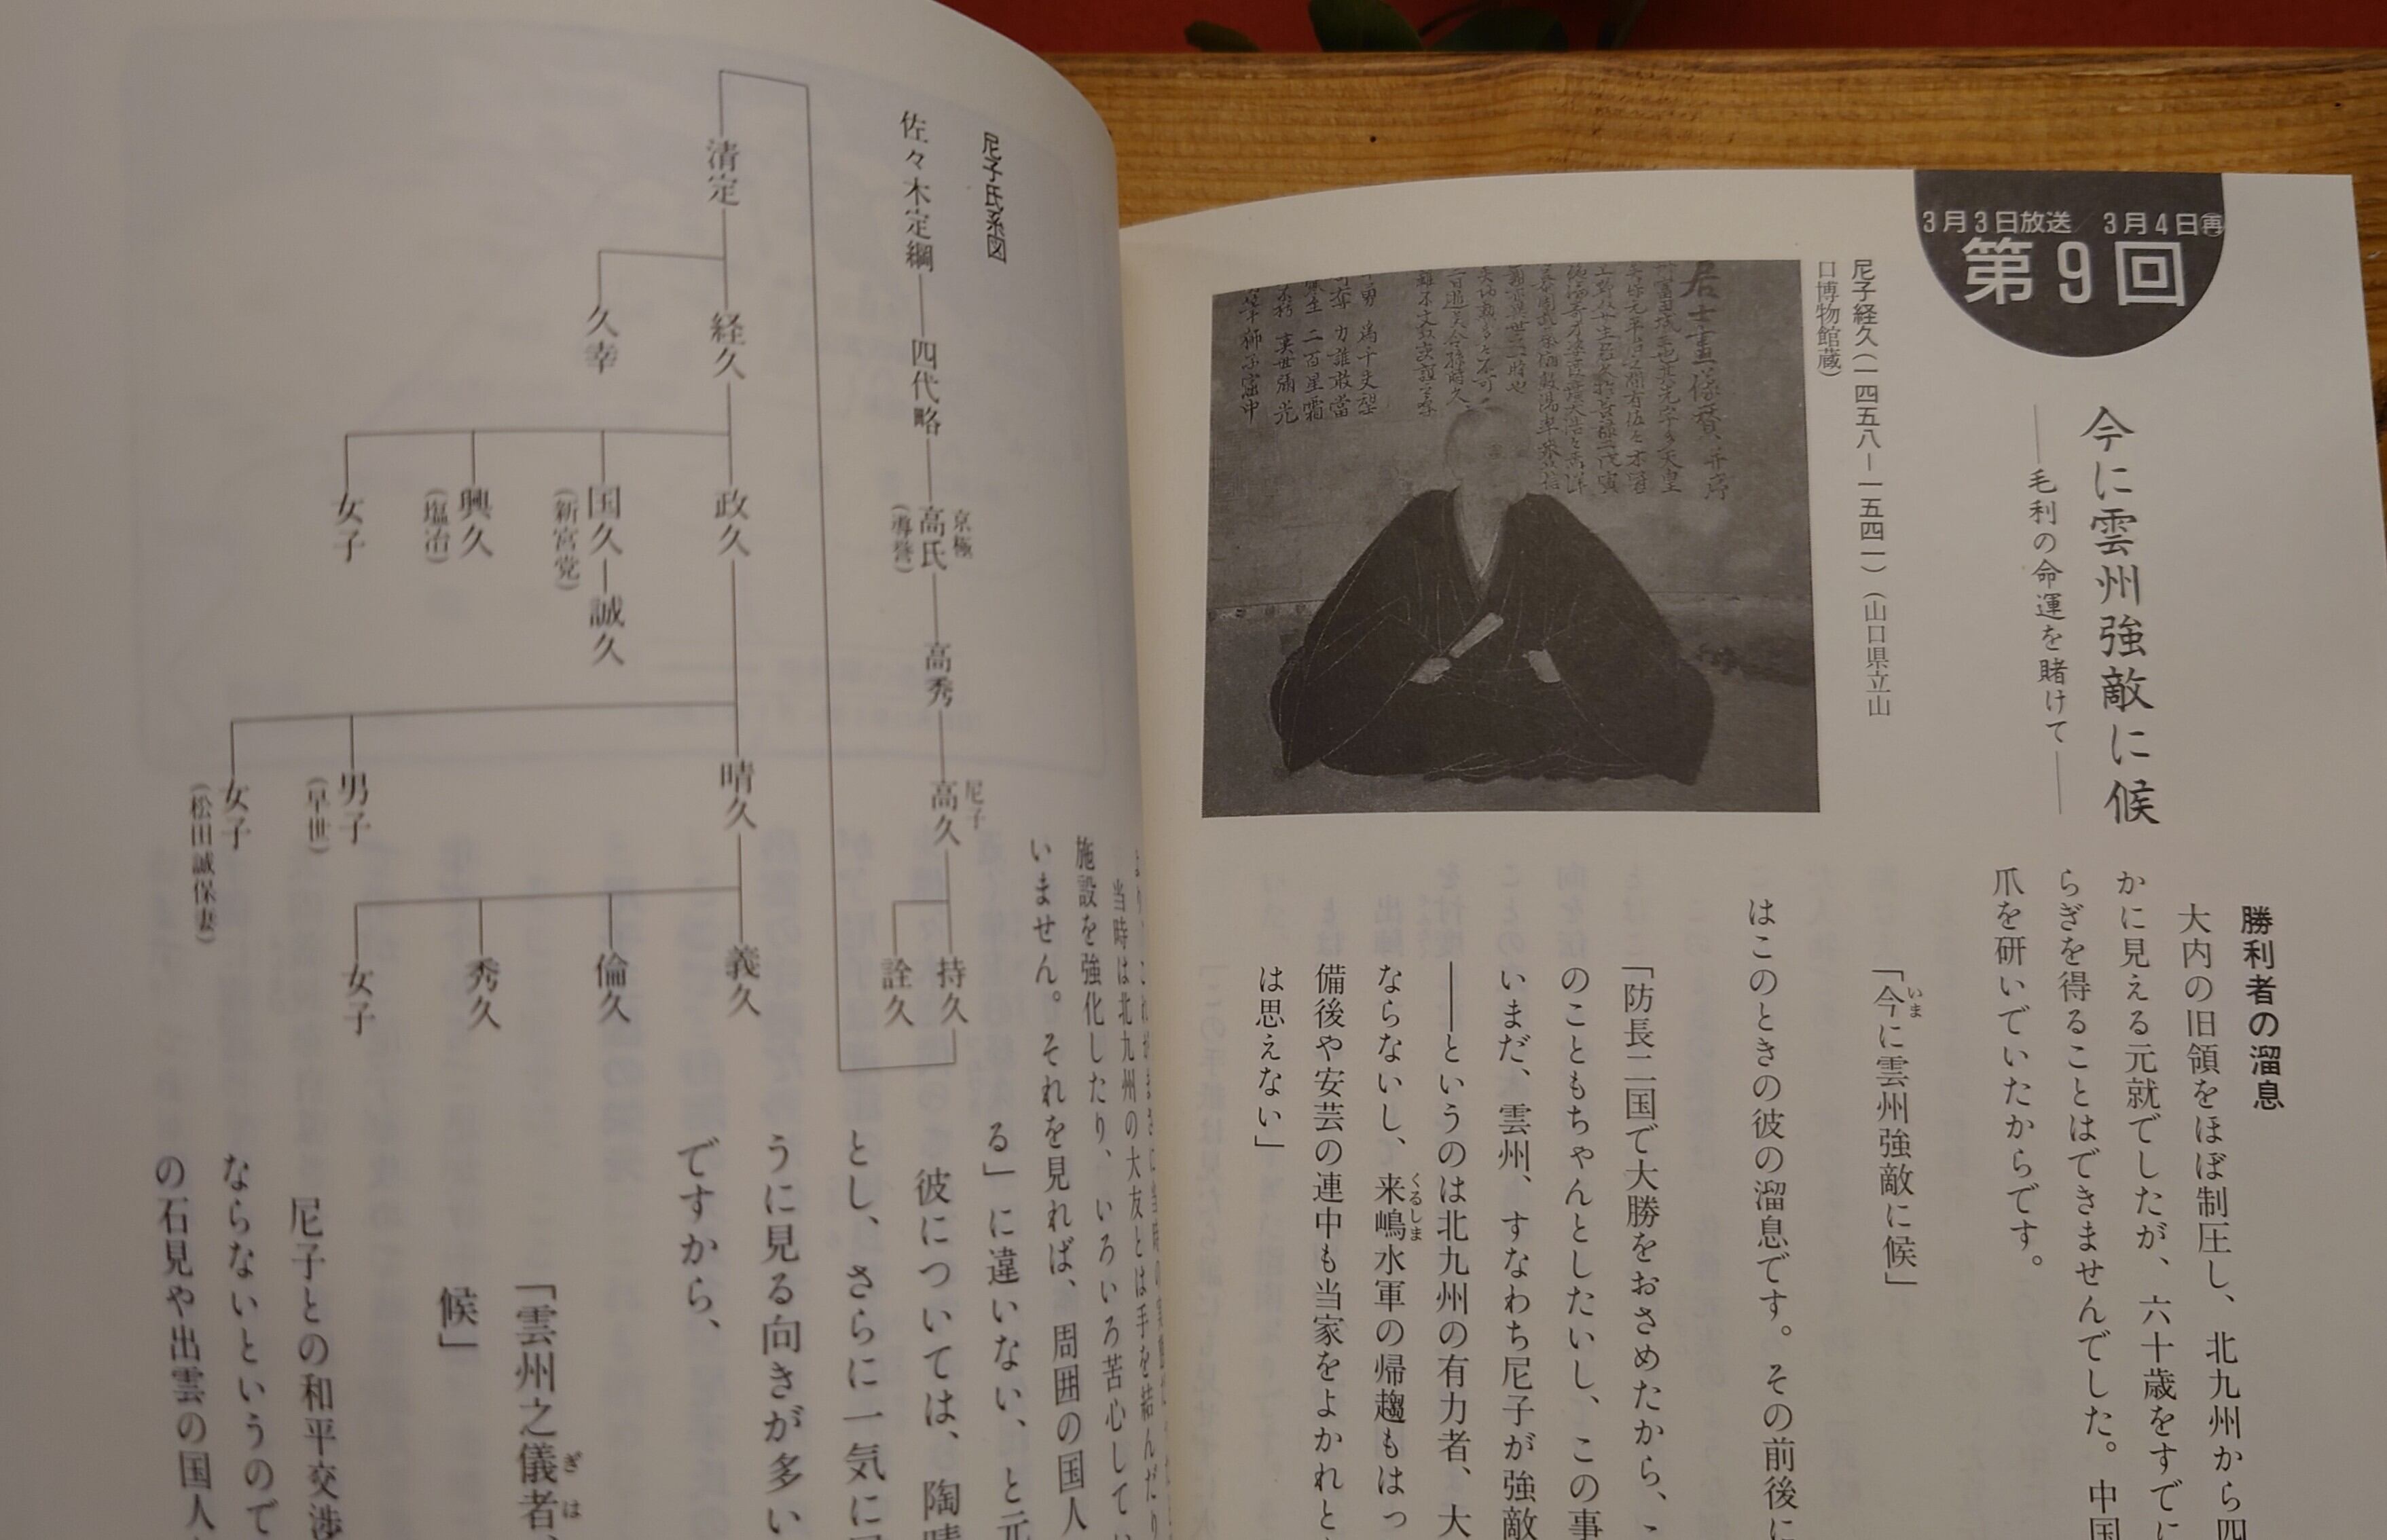 3月3日放送/3月4日㊢
第9回
今に雲州強敵に候
――毛利の命運を賭けて――
尼子経久(一四五八―一五四一)(山口県立山
口博物館蔵)
勝利者の溜息
大内の旧領をほぼ制圧し、北九州から四
かに見える元就でしたが、六十歳をすでに
らぎを得ることはできませんでした。中国
爪を研いでいたからです。
「今に雲州強敵に候」
いま
はこのときの彼の溜息です。その前後に
「防長二国で大勝をおさめたから、
のこともちゃんとしたいし、この事
いまだ、雲州、すなわち尼子が強敵
――というのは北九州の有力者、大
ならないし、来嶋水軍の帰趨もはっ
くるしま
備後や安芸の連中も当家をよかれと
は思えない」
尼子氏系図
佐々木定綱
四代略
京極
高氏
(導誉)
高秀
尼子
高久
持久
詮久
清定
経久
久幸
政久
国久
(新宮党)
誠久
興久
(塩冶)
女子
晴久
男子
(早世)
女子
(松田誠保妻)
義久
倫久
秀久
女子
当時は北九州の大友とは手を結んだり
施設を強化したり、いろいろ苦心して
いません。それを見れば、周囲の国人
る」に違いない、と元
彼については、陶晴
とし、さらに一気に
うに見る向きが多い
ですから、
「雲州之儀者、
ぎは
候」
尼子との和平交渉
ならないというので
の石見や出雲の国人